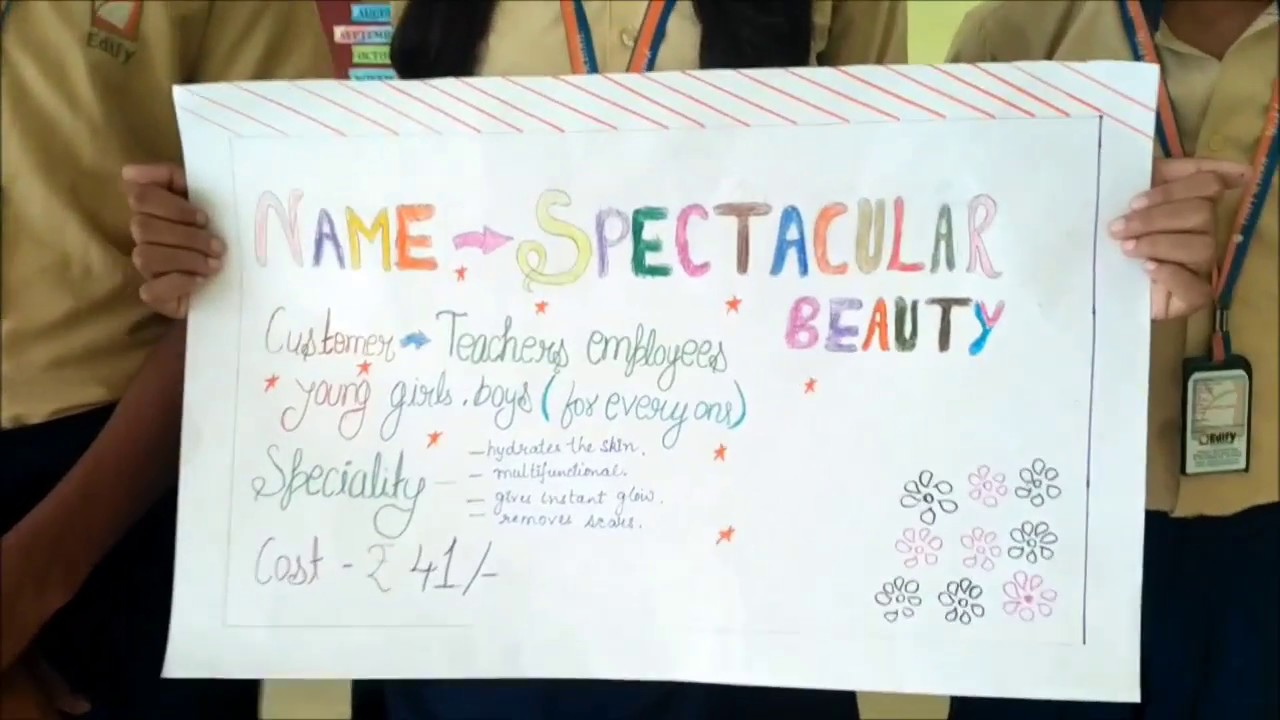 Edify
AUGUST
SEPTEMB
OCTO
NAME → SPECTACULAR
BEAUTY
Customer → Teachers employees
young girls. boys (for everyone)
Speciality
- hydrates the skin.
- multifunctional.
- gives instant glow.
- removes scars.
Cost - ₹ 41/-
Edify